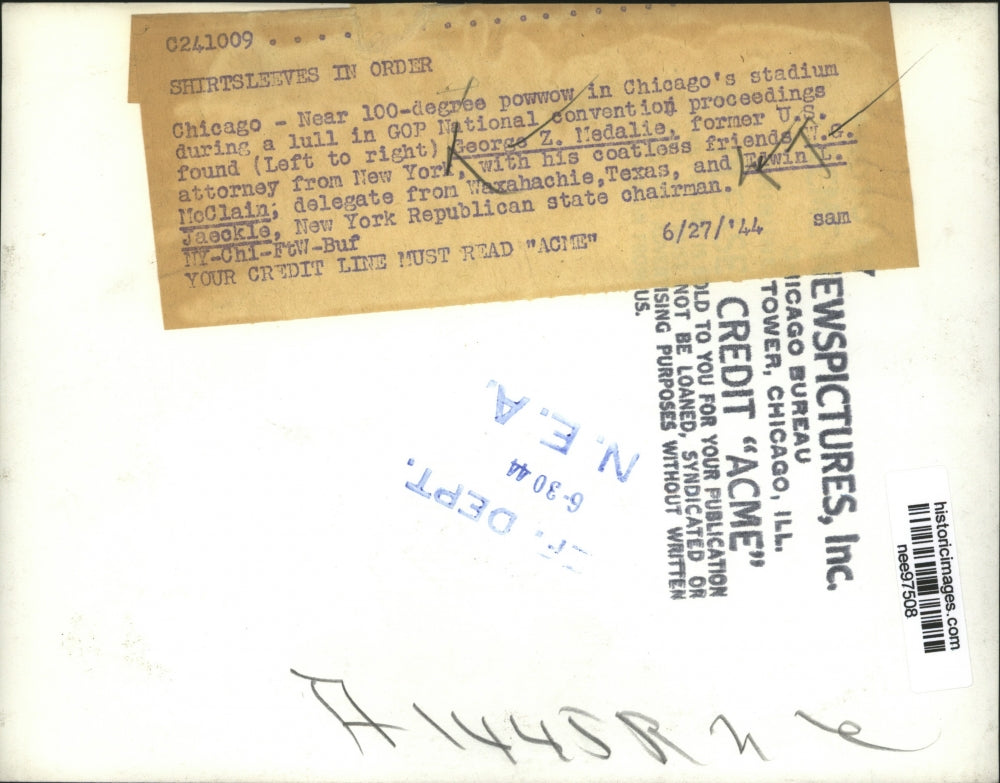 C241009 . . . .
SHIRTSLEEVES IN ORDER
Chicago - Near 100-degree powwow in Chicago's stadium
during a lull in GOP National convention proceedings
found (Left to right) George Z. Medalie, former U.S.
attorney from New York, with his coatless friends W.G.
McClain; delegate from Waxahachie,Texas, and Edwin L.
Jaeckle, New York Republican state chairman.
NY-Chi-FtW-Buf
6/27/'44 sam
YOUR CREDIT LINE MUST READ "ACME"
EWSPICTURES, Inc.
ICAGO BUREAU
TOWER, CHICAGO, ILL.
CREDIT "ACME"
OLD TO YOU FOR YOUR PUBLICATION
NOT BE LOANED, SYNDICATED OR
ISING PURPOSES WITHOUT WRITTEN
US.
N.E.A.
6-30 44
DEPT.
historicimages.com
nee97508
A1445R